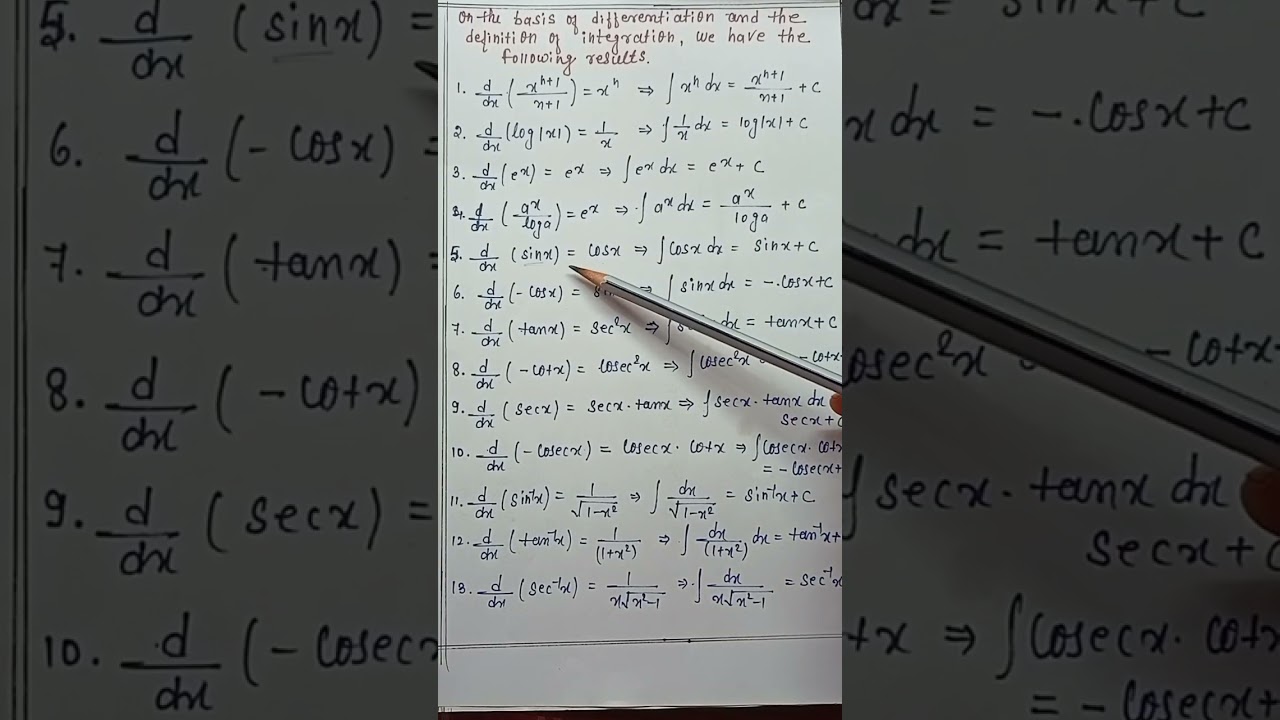 On the basis of differentiation and the
definition of integration, we have the
following results.
1. d/dx (x^(n+1)/(n+1)) = x^n ⇒ ∫ x^n dx = x^(n+1)/(n+1) + C
2. d/dx (log|x|) = 1/x ⇒ ∫ 1/x dx = log|x| + C
3. d/dx (e^x) = e^x ⇒ ∫ e^x dx = e^x + C
4. d/dx (a^x/loga) = e^x ⇒ ∫ a^x dx = a^x/loga + C
5. d/dx (sinx) = cosx ⇒ ∫ cosx dx = sinx + C
6. d/dx (-cosx) = ⇒ ∫ sinx dx = -cosx + C
7. d/dx (tanx) = sec²x ⇒ ∫ dx = tanx + C
8. d/dx (-cotx) = cosec²x ⇒ ∫ cosec²x -cotx
9. d/dx (secx) = secx·tanx ⇒ ∫ secx·tanx dx
secx + C
10. d/dx (-cosecx) = cosecx·cotx ⇒ ∫ cosecx·cotx
= -cosecx+
11. d/dx (sin⁻¹x) = 1/√(1-x²) ⇒ ∫ dx/√(1-x²) = sin⁻¹x + C
12. d/dx (tan⁻¹x) = 1/(1+x²) ⇒ ∫ dx/(1+x²) dx = tan⁻¹x+
13. d/dx (sec⁻¹x) = 1/(x√(x²-1)) ⇒ ∫ dx/(x√(x²-1)) = sec⁻¹x